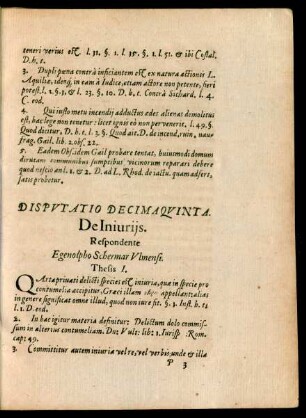 teneri verius est l. 31. §. 1. l. 35. §. 2. l. 51. & ibi Costal.
D. h. t.
3. Dupli pœna contrà inficiantem est ex natura actionis L.
Aquiliæ, ideóq; in eam à Iudice, etiam actore non petente, fieri
potest. l. 2. §. 1. & l. 23. §. 10. D. h. t. Contrà Sichard. l. 4.
C. eod.
4. Qui iusto metu incendij adductus ædes alienas demolitus
est, hac lege non tenetur: licet ignis eò non pervenerit, l. 49. §.
Quod dicitur, D. h. t. l. 3. §. Quod ait. D. de incend, ruin, nau-
frag. Gail. lib. 2. obs. 22.
5. Eadem Obs. idem Gail probare tentat, huiusmodi domum
dirutam communibus sumptibus vicinorum reparari debere
quod nescio an l. 1. & 2. D. ad L. Rhod. de iactu. quam adfert,
satis probetur.
DISPVTATIO DECIMAQVINTA.
De Iniurijs.
Respondente
Egenolpho Schermar Vlmensi.
Thesis 1.
QVarta privati delicti species est iniuria, quæ in specie pro
contumelia accipitur, Græci illam appellant: alias
in genere significat omne illud, quod non iure fit. §. 1. Inst. h. t.
l. 1. D. eod.
2. In hac igitur materia definitur: Delictum dolo commis-
sum in alterius contumeliam. Du: Vult: lib: 1. Iurisp. Rom.
cap: 49.
3. Committitur autem iniuria vel re, vel verbis, unde & illa
P 3